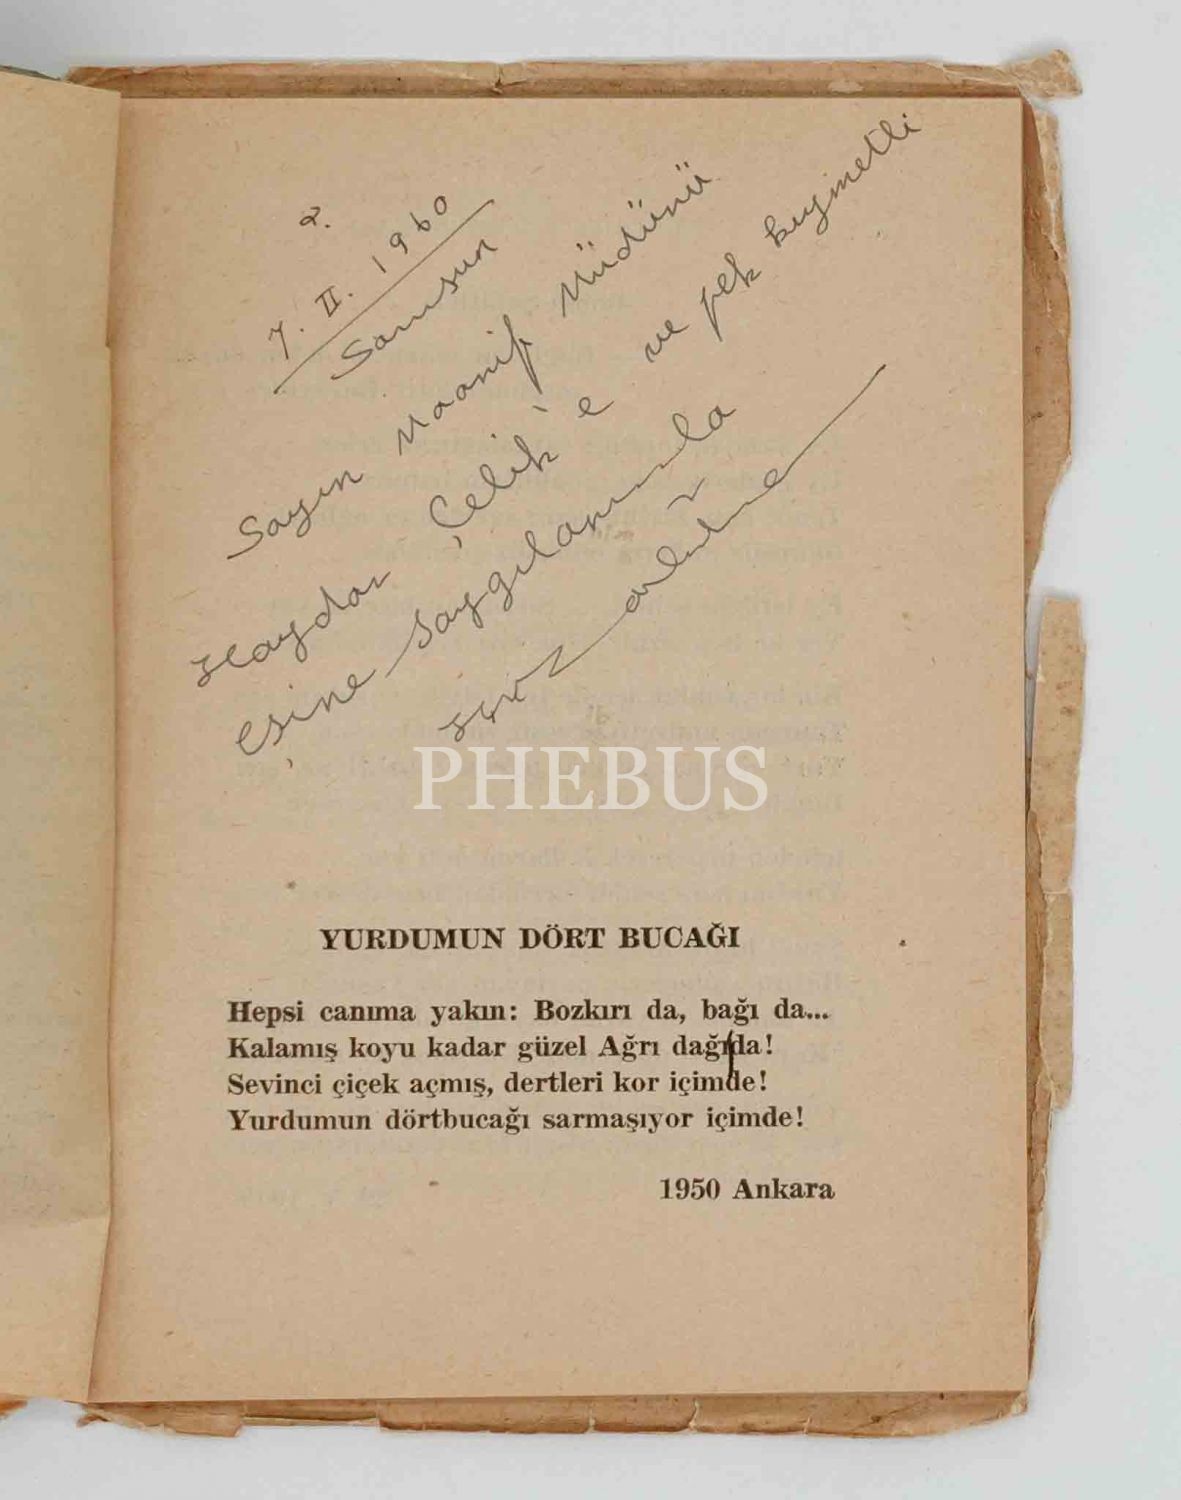 2.
7. II. 1960
Samsun
Sayın Maarif Müdürü
Haydar Çelik'e ve pek kıymetli
Eşine Saygılarımla
PHEBUS
YURDUMUN DÖRT BUCAĞI
Hepsi canıma yakın: Bozkırı da, bağı da...
Kalamış koyu kadar güzel Ağrı dağı da!
Sevinci çiçek açmış, dertleri kor içimde!
Yurdumun dörtbucağı sarmaşıyor içimde!
1950 Ankara